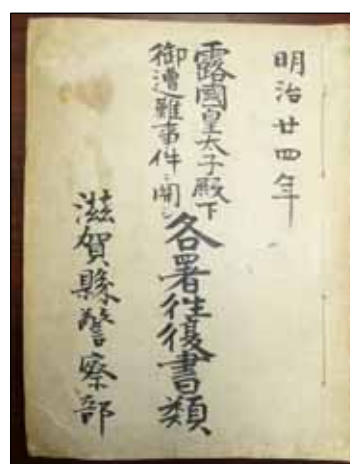 明治廿四年
露國皇太子殿下
御遭難事件ニ関シ
各署往復書類
滋賀縣警察部